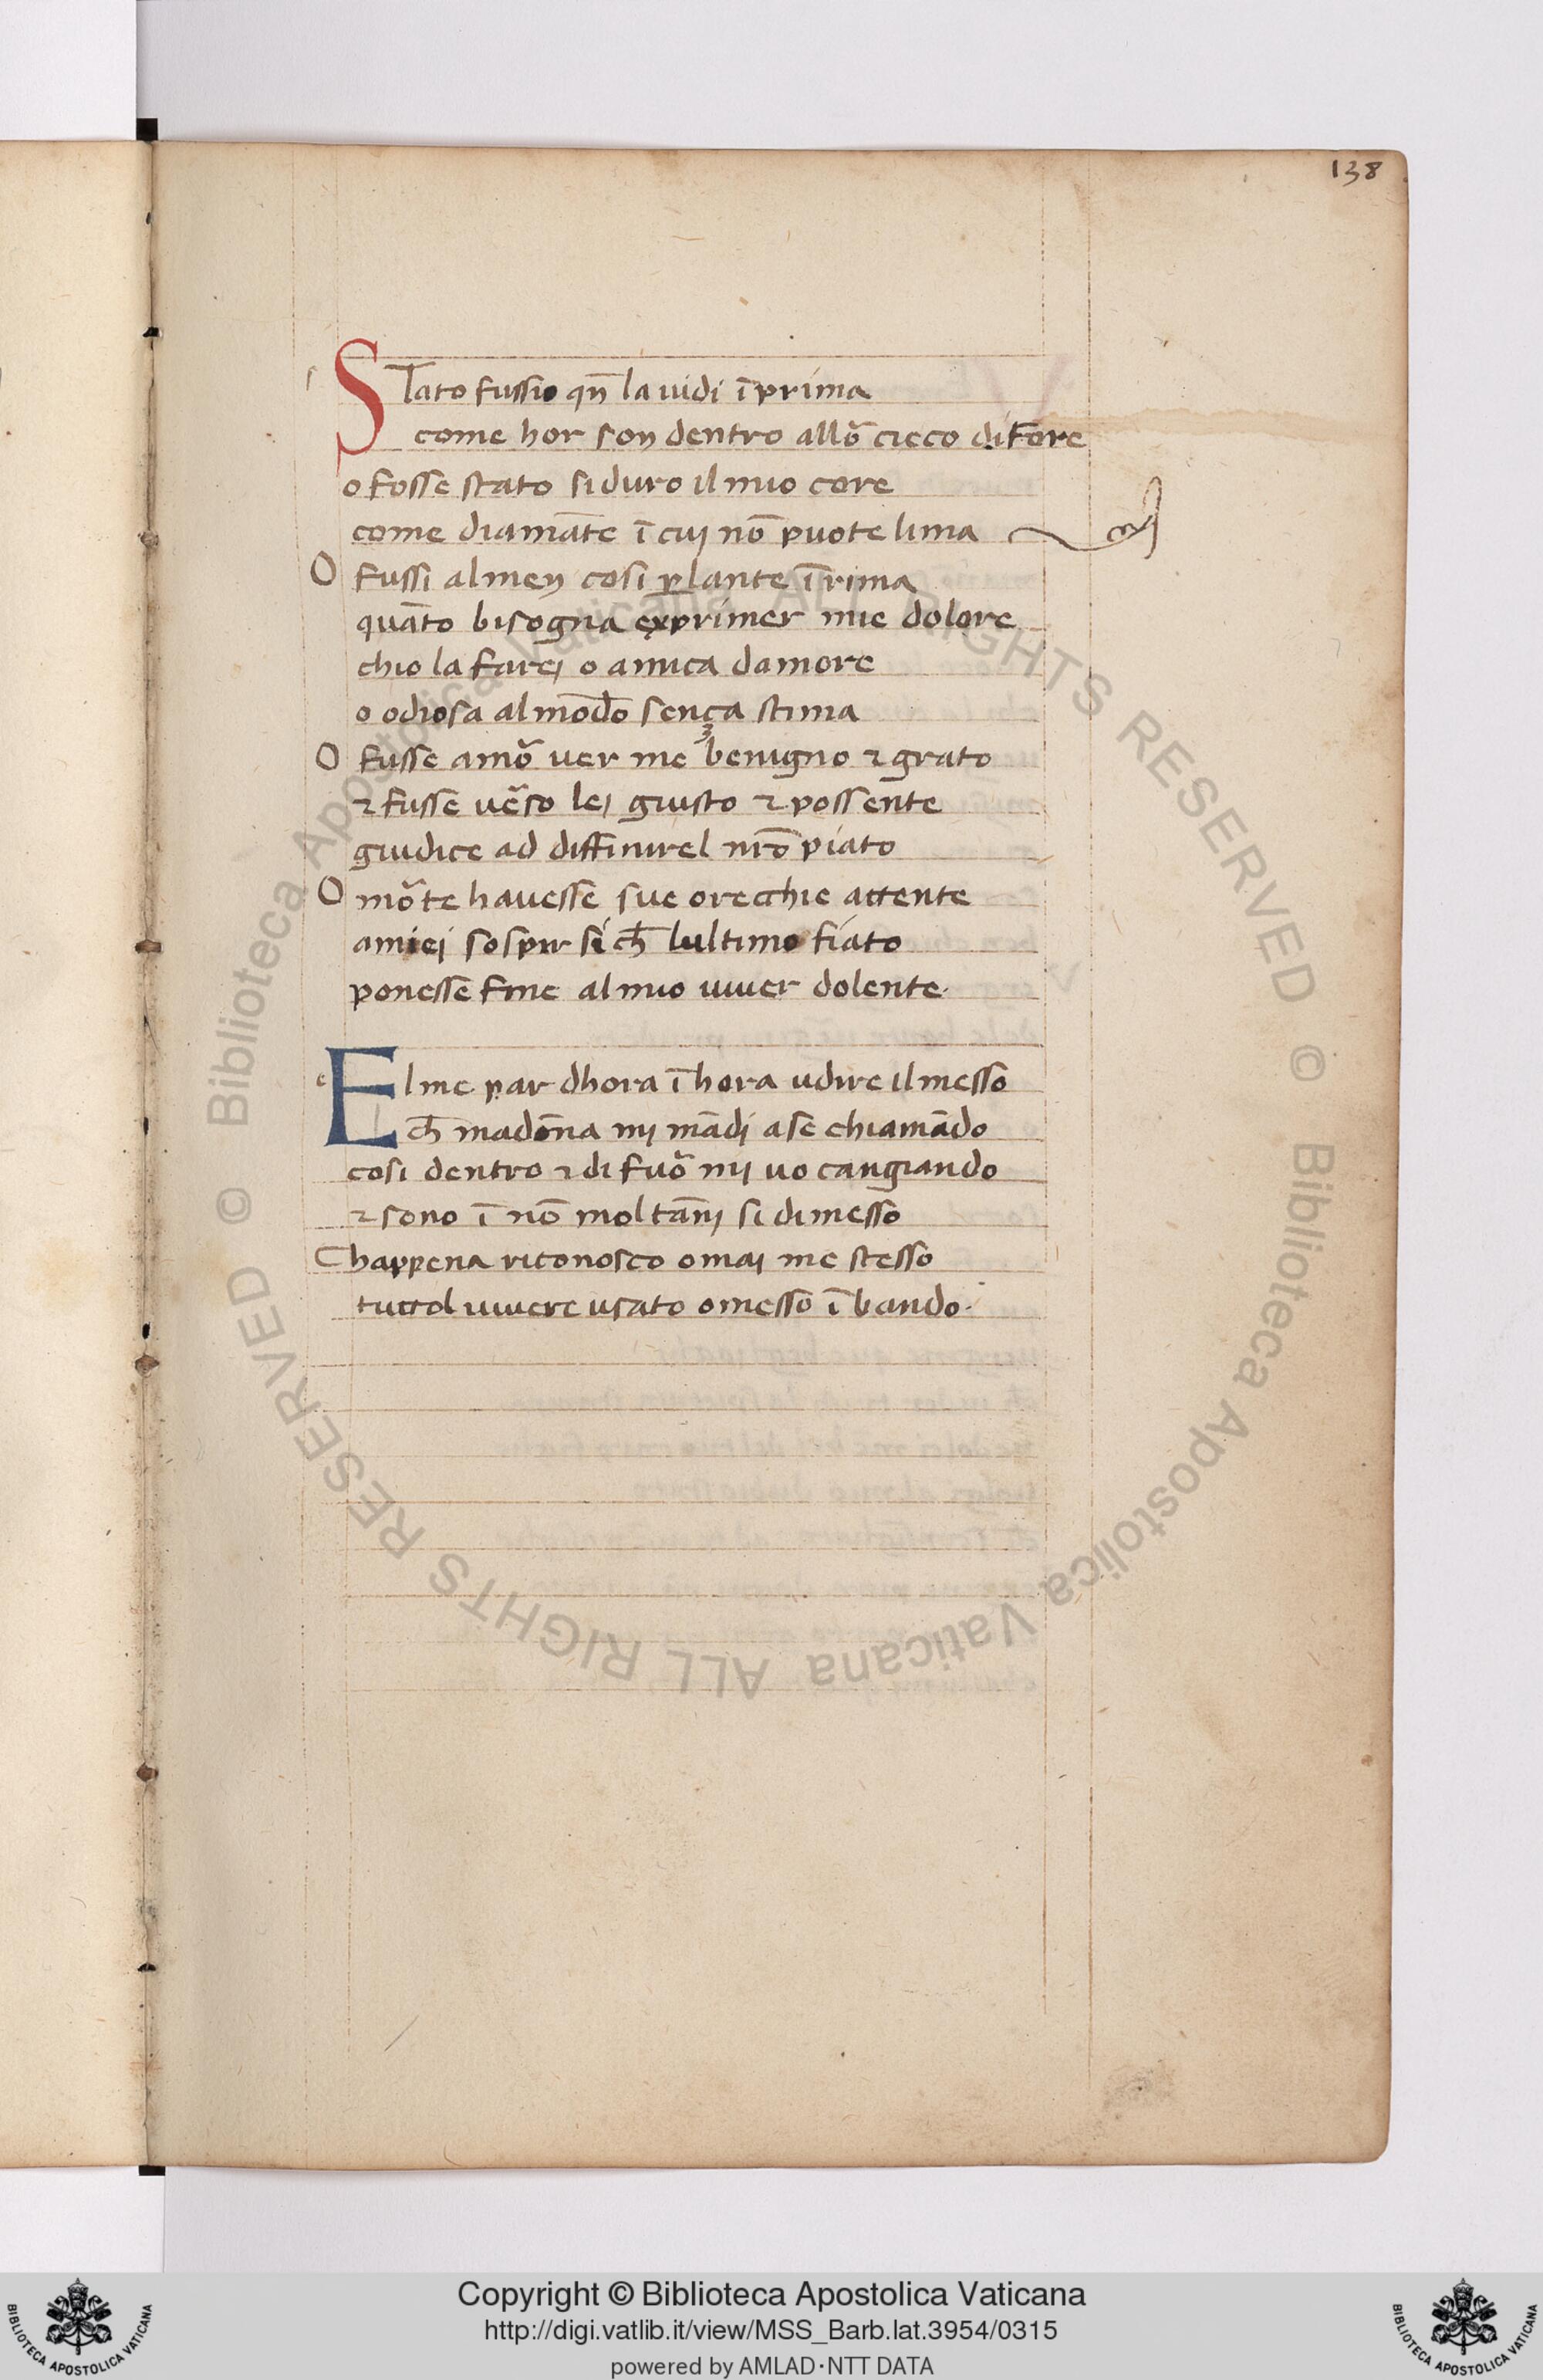 138
Stato fussio qn̄ la uidi ī prima
come hor son dentro allō cieco di fore
o fosse stato si duro il mio core
come diamāte ī cuj nō puote lima
O fussi almen cosi ꝑlante ī rima
quāto bisogna exprimer mie dolore
chio la farej o amica damore
o odiosa al mōdo sença stima
O fusse amō uer me benigno ⁊ grato
⁊ fusse uēso lej giusto ⁊ possente
giudice ad diffinirel nrō piato
O mōte hauesse sue orecchie attente
amiej sospir si ch̄ lultimo fiato
ponesse fine al mio uiuer dolente.
El me par dhora ī hora udire il messo
ch̄ madōna mj mādj a se chiamādo
cosi dentro ⁊ di fuō mj uo cangiando
⁊ sono ī nō moltānj si dimesso
Chappena riconosco omaj me stesso
tuctol uiuere usato o messo ī bando.
© Biblioteca Apostolica Vaticana ALL RIGHTS RESERVED © Biblioteca Apostolica Vaticana ALL RIGHTS RESERVED
Copyright © Biblioteca Apostolica Vaticana
http://digi.vatlib.it/view/MSS_Barb.lat.3954/0315
powered by AMLAD·NTT DATA
BIBLIOTECA APOSTOLICA VATICANA
BIBLIOTECA APOSTOLICA VATICANA